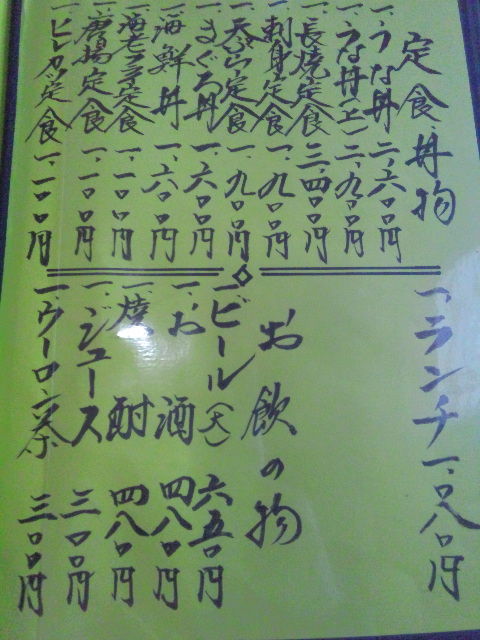 定食 丼物
一、うな丼 二、六〇〇円
一、うな丼(上) 二、九〇〇円
一、長焼定食 三、四〇〇円
一、刺身定食 一、九〇〇円
一、天ぷら定食 一、九〇〇円
一、まぐろ丼 一、六〇〇円
一、海鮮丼 一、六〇〇円
一、海老フライ定食 一、一〇〇円
一、唐揚定食 一、一〇〇円
一、ヒレカツ定食 一、一〇〇円
一、ランチ 一、〇八〇円
お飲の物
一、ビール(大) 六五〇円
一、お酒 四八〇円
一、焼酎 四八〇円
一、ジュース 三〇〇円
一、ウーロン茶 三〇〇円